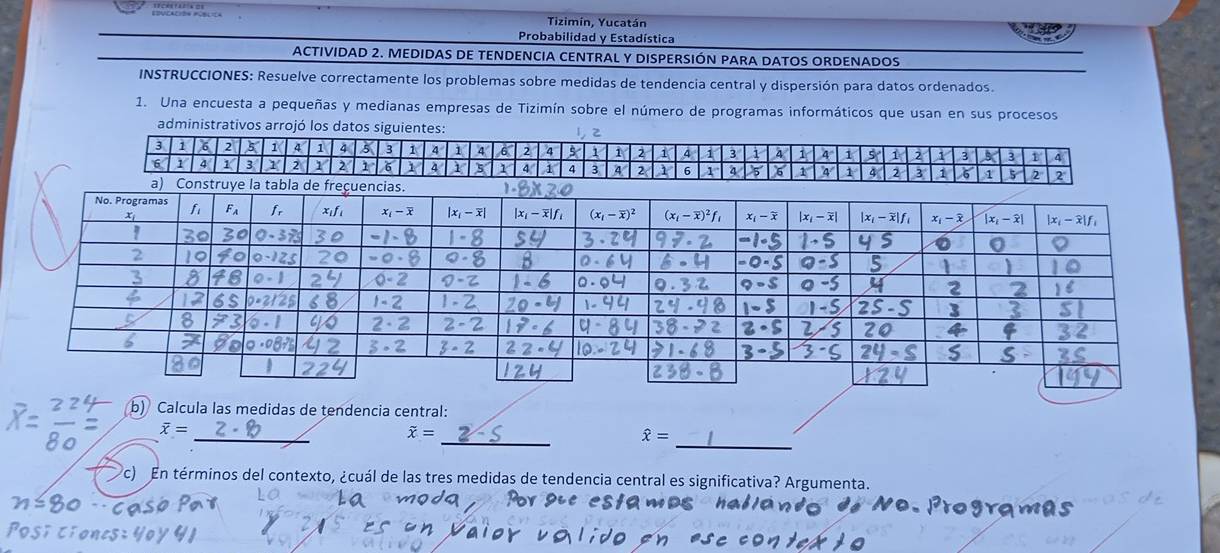 SECRETARÍA DE
EDUCACIÓN PÚBLICA
Tizimín, Yucatán
Probabilidad y Estadística
ACTIVIDAD 2. MEDIDAS DE TENDENCIA CENTRAL Y DISPERSIÓN PARA DATOS ORDENADOS
INSTRUCCIONES: Resuelve correctamente los problemas sobre medidas de tendencia central y dispersión para datos ordenados.
1. Una encuesta a pequeñas y medianas empresas de Tizimín sobre el número de programas informáticos que usan en sus procesos
administrativos arrojó los datos siguientes:
1, 2
3 1 6 2 5 1 4 1 4 5 3 1 4 1 4 6 2 4 5 1 1 2 1 4 1 3 1 4 1 4 1 5 1 2 1 3 5 3 1 4
6 1 4 1 3 1 2 1 2 1 6 1 4 1 5 1 4 1 4 3 4 2 1 6 1 4 5 6 1 4 1 4 2 3 1 6 1 5 2 2
a) Construye la tabla de frecuencias.
1.8x30
No. Programas xᵢ fᵢ F_A fᵣ xᵢfᵢ xᵢ − x̅ |xᵢ − x̅| |xᵢ − x̅|fᵢ (xᵢ − x̅)² (xᵢ − x̅)²fᵢ xᵢ − x̃ |xᵢ − x̃| |xᵢ − x̃|fᵢ xᵢ − x̂ |xᵢ − x̂| |xᵢ − x̂|fᵢ
1 30 30 0.375 30 -1.8 1.8 54 3.24 97.2 -1.5 1.5 45 0 0 0
2 10 40 0.125 20 -0.8 0.8 8 0.64 6.4 -0.5 0.5 5 1 1 10
3 8 48 0.1 24 0.2 0.2 1.6 0.04 0.32 0.5 0.5 4 2 2 16
4 17 65 0.2125 68 1.2 1.2 20.4 1.44 24.48 1.5 1.5 25.5 3 3 51
5 8 73 0.1 40 2.2 2.2 17.6 4.84 38.72 2.5 2.5 20 4 4 32
6 7 80 0.0875 42 3.2 3.2 22.4 10.24 71.68 3.5 3.5 24.5 5 5 35
80 1 224 124 238.8 124 144
x̅ = 224/80 =
b) Calcula las medidas de tendencia central:
x̅ = 2.8 x̃ = 2.5 x̂ = 1
c) En términos del contexto, ¿cuál de las tres medidas de tendencia central es significativa? Argumenta.
n=80 .. caso Par La moda, Por que estamos hallando No. Programas
Posiciones: 40 y 41 es un valor valido en ese contexto